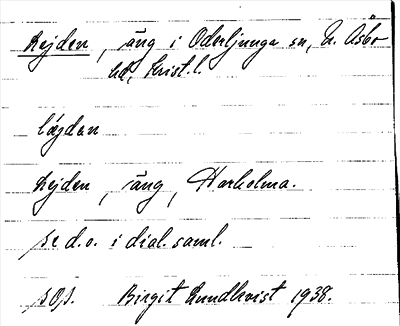 Lejden, äng i Oderljunga sn, N. Åsbo
hd, Krist.l.
lægdan
Lejden, äng, Harholma.
se d.o. i dial.saml.
Birgit Lundkvist 1938.